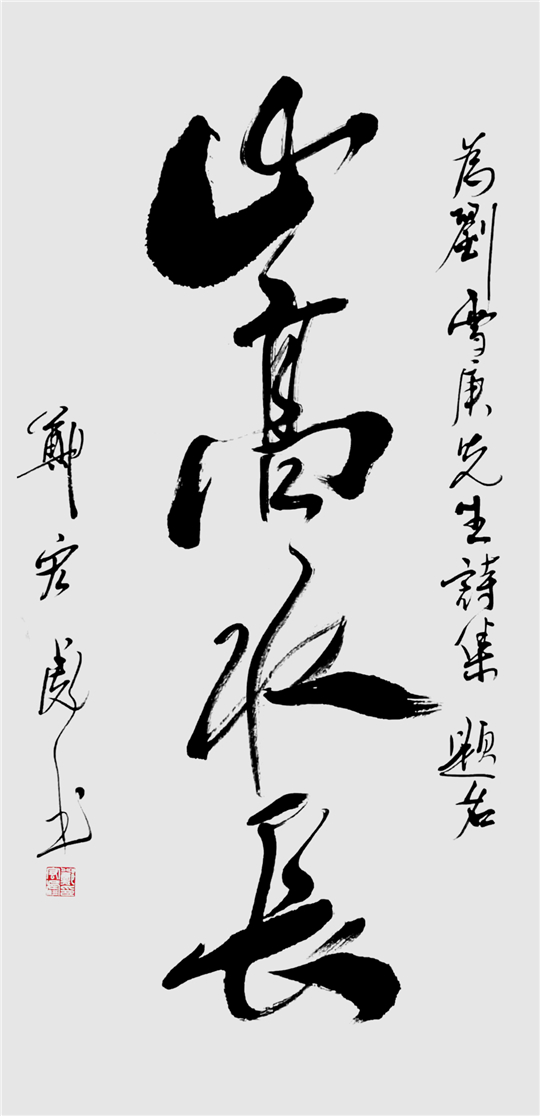 為劉雪庚先生詩集 題名
山高水長
鄭宏彪书